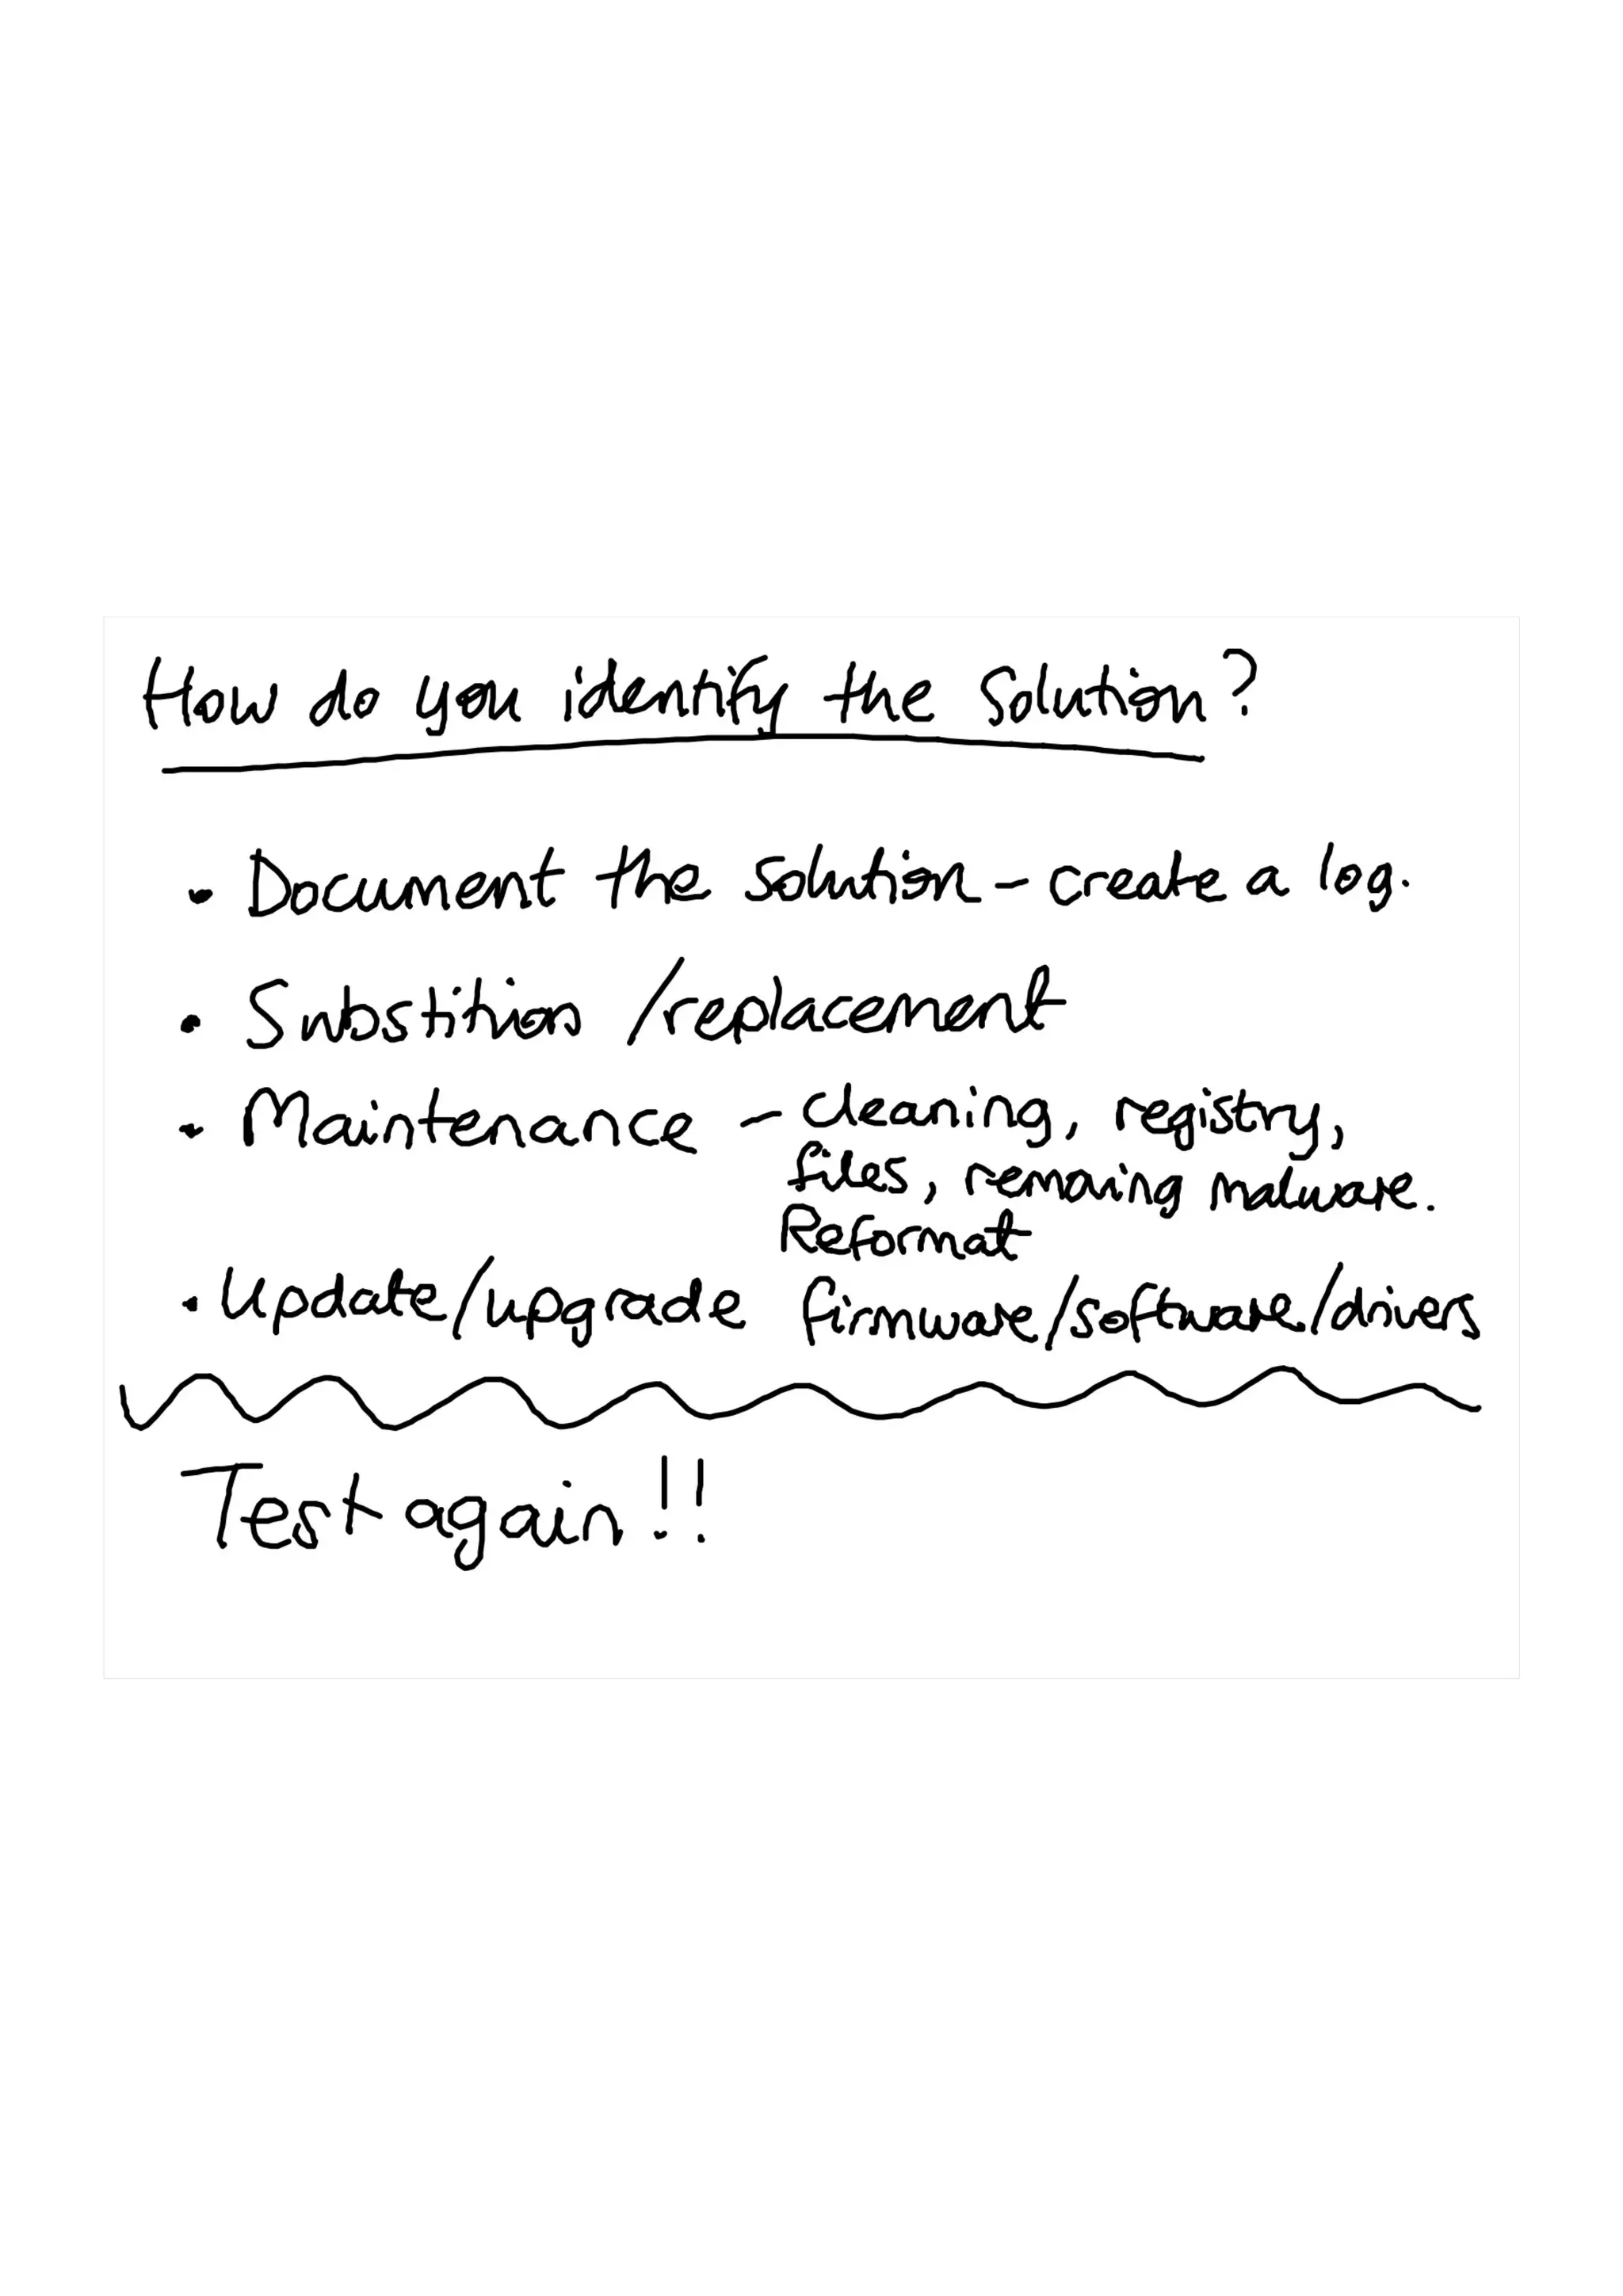 How do you identify the Solution?
• Document the solution - create a log.
• Substitution /replacement
• Maintenance - cleaning, registry,
files, removing malware.
Reformat
• Update/upgrade firmware/software/drivers
Test again!!